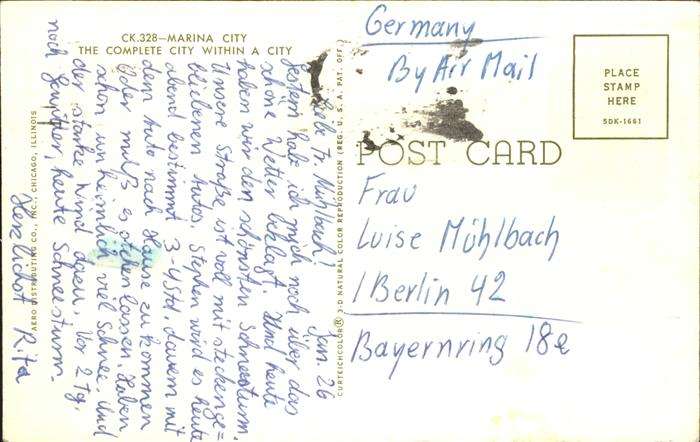 CK.328—MARINA CITY
THE COMPLETE CITY WITHIN A CITY
Jan. 26
Liebe Fr. Mühlbach!
Gestern habe ich mich noch über das
schöne Wetter beklagt. Und heute
haben wir den schönsten Schneesturm.
Unsere Straße ist voll mit steckenge=
bliebenen Autos. Stephen wird es heute
abend bestimmt 3-4 Std. dauern mit
dem Auto nach Hause zu kommen
Oder muß es stehen lassen. Haben
schon unheimlich viel Schnee. Und
der starke Wind dazu. Vor 2 Tg.
noch Gewitter, heute Schneesturm.
Herzlichst Rita
AERO DISTRIBUTING CO., INC., CHICAGO, ILLINOIS
CURTEICHCOLOR® 3-D NATURAL COLOR REPRODUCTION (REG. U.S.A. PAT. OFF.)
Germany
By Air Mail
PLACE
STAMP
HERE
5DK-1661
POST CARD
Frau
Luise Mühlbach
1 Berlin 42
Bayernring 18e